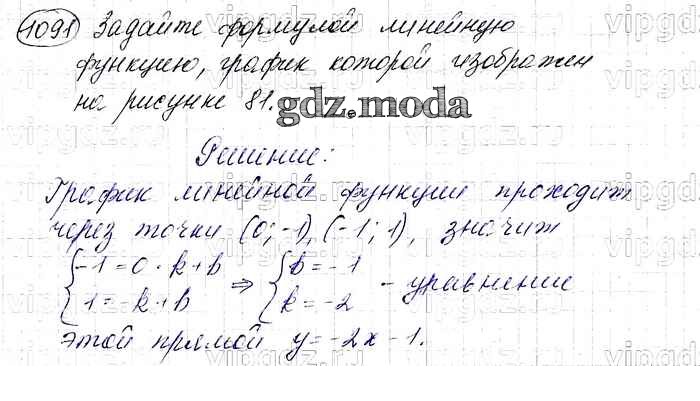 1091 Задайте формулой линейную
функцию, график которой изображен
на рисунке 81. gdz.moda
Решение:
График линейной функции проходит
через точки (0; -1), (-1; 1), значит
{-1 = 0 · k + b ⇒ {b = -1
{1 = -k + b {k = -2 - уравнение
этой прямой y = -2x - 1.